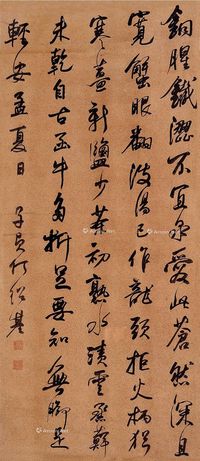 銅腥鐵澀不宜泉愛此蒼然深且
寬蟹眼翻波湯已作龍頭拒火柄猶
寒薑新鹽少茶初熟水漬雲蒸蘚
未乾自古函牛多折足要知無腳是
輕安孟夏日
子貞何紹基